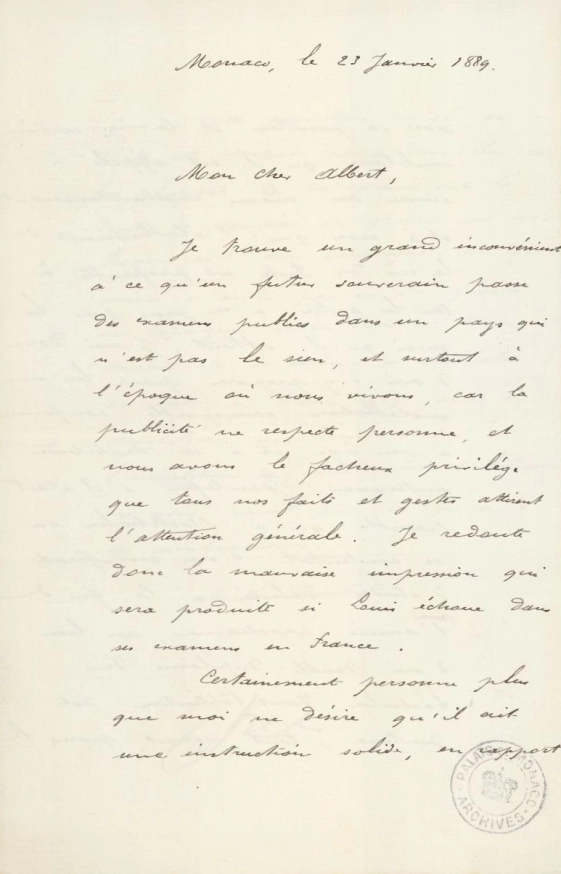 Monaco, le 23 Janvier 1889.
Mon cher Albert,
Je trouve un grand inconvénient
à ce qu'un futur souverain passe
des examens publics dans un pays qui
n'est pas le sien, et surtout à
l'époque où nous vivons, car la
publicité ne respecte personne, et
nous avons le facheux privilége
que tous nos faits et gestes attirent
l'attention générale. Je redoute
donc la mauvaise impression qui
sera produite si Louis échoue dans
ses examens en France.
Certainement personne plus
que moi ne désire qu'il ait
une instruction solide, en rapport
PALAIS MONACO
ARCHIVES